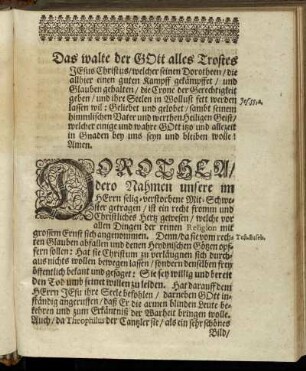 Das walte der GOtt alles Trostes
JEsus Christus / welcher seinen Dorotheen / die
allhier einen guten Kampff gekämpffet / und
Glauben gehalten / die Crone der Gerechtigkeit
geben / und ihre Seelen in Wollust fett werden
lassen wil: Geliebet und gelobet / sambt seinem
himmlischen Vater und werthen Heiligen Geist /
welcher einige und wahre GOtt itzo und allezeit
in Gnaden bey uns seyn und bleiben wolle!
Amen.
DOROTHEA /
dero Nahmen unsere im
HErrn selig-verstorbene Mit-Schwester
getragen / ist ein recht fromm und
Christliches Hertz gewesen / welche vor
allen Dingen der reinen Religion mit
grossem Ernst sich angenommen. Denn / da sie vom rechten
Glauben abfallen und denen Heydnischen Götzen opfern
sollen: Hat sie Christum zu verläugnen sich durchaus
nichts wollen bewegen lassen / sondern denselben frey
öffentlich bekant und gesaget: Sie sey willig und bereit
den Tod umb seinet willen zu leiden. Hat darauff dem
HErrn JEsu ihre Seele befohlen / darneben GOtt inständig
angeruffen / daß Er die armen blinden Leute bekehren
und zum Erkäntniß der Warheit bringen wolle.
Auch / da Theophilus der Cantzler sie / als ein sehr schönes
Bild /